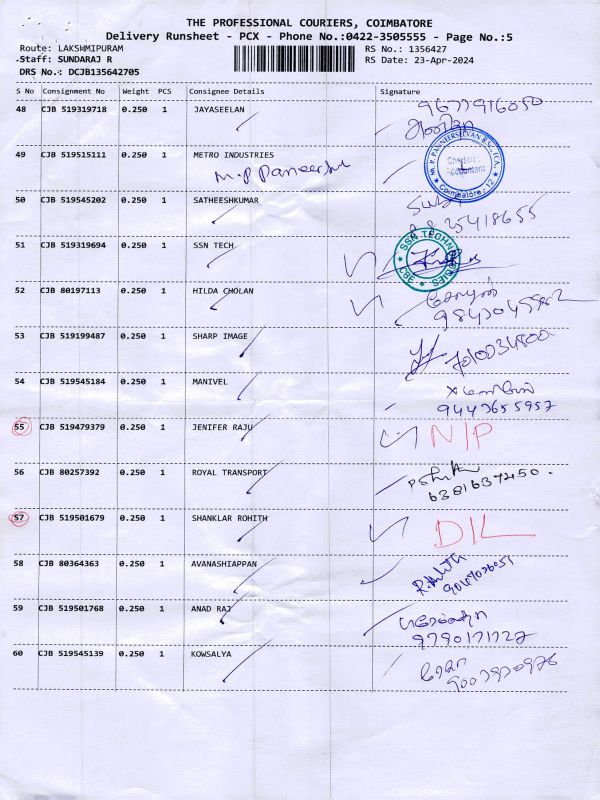 THE PROFESSIONAL COURIERS, COIMBATORE
Delivery Runsheet - PCX - Phone No.:0422-3505555 - Page No.:5
Route: LAKSHMIPURAM RS No.: 1356427
Staff: SUNDARAJ R RS Date: 23-Apr-2024
DRS No.: DCJB135642705
S No Consignment No Weight PCS Consignee Details Signature
48 CJB 519319718 0.250 1 JAYASEELAN 9677916050
49 CJB 519515111 0.250 1 METRO INDUSTRIES
M.P Paneerselv
Chartered Accountant
Coimbatore - 12
50 CJB 519545202 0.250 1 SATHEESHKUMAR
51 CJB 519319694 0.250 1 SSN TECH
SSN TECHNOLOGIES CBE
52 CJB 80197113 0.250 1 HILDA CHOLAN
53 CJB 519199487 0.250 1 SHARP IMAGE
54 CJB 519545184 0.250 1 MANIVEL
55 CJB 519479379 0.250 1 JENIFER RAJU N/P
56 CJB 80257392 0.250 1 ROYAL TRANSPORT
6381637450
57 CJB 519501679 0.250 1 SHANKLAR ROHITH D/L
58 CJB 80364363 0.250 1 AVANASHIAPPAN
59 CJB 519501768 0.250 1 ANAD RAJ
9790171727
60 CJB 519545139 0.250 1 KOWSALYA